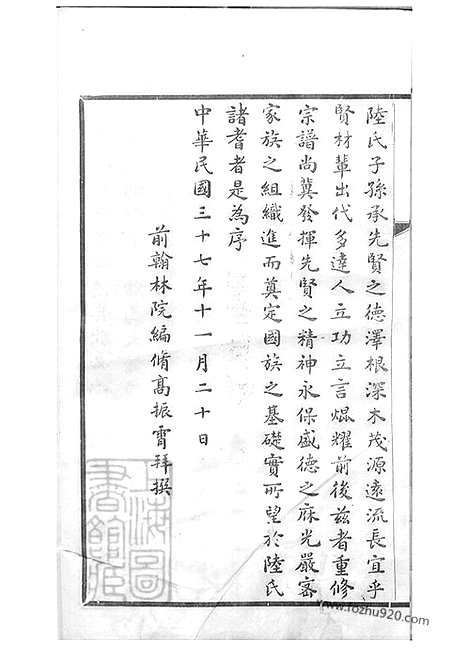 陸氏子孫承先賢之德澤根深木茂源遠流長宜乎
賢材輩出代多達人立功立言焜耀前後兹者重修
宗譜尚冀發揮先賢之精神永保盛德之庥光嚴密
家族之組織進而奠定國族之基礎實所望於陸氏
諸耆者是為序
中華民國三十七年十一月二十日
前翰林院編脩高振霄拜撰
上海圖
書館藏
www.rozhu79020.com